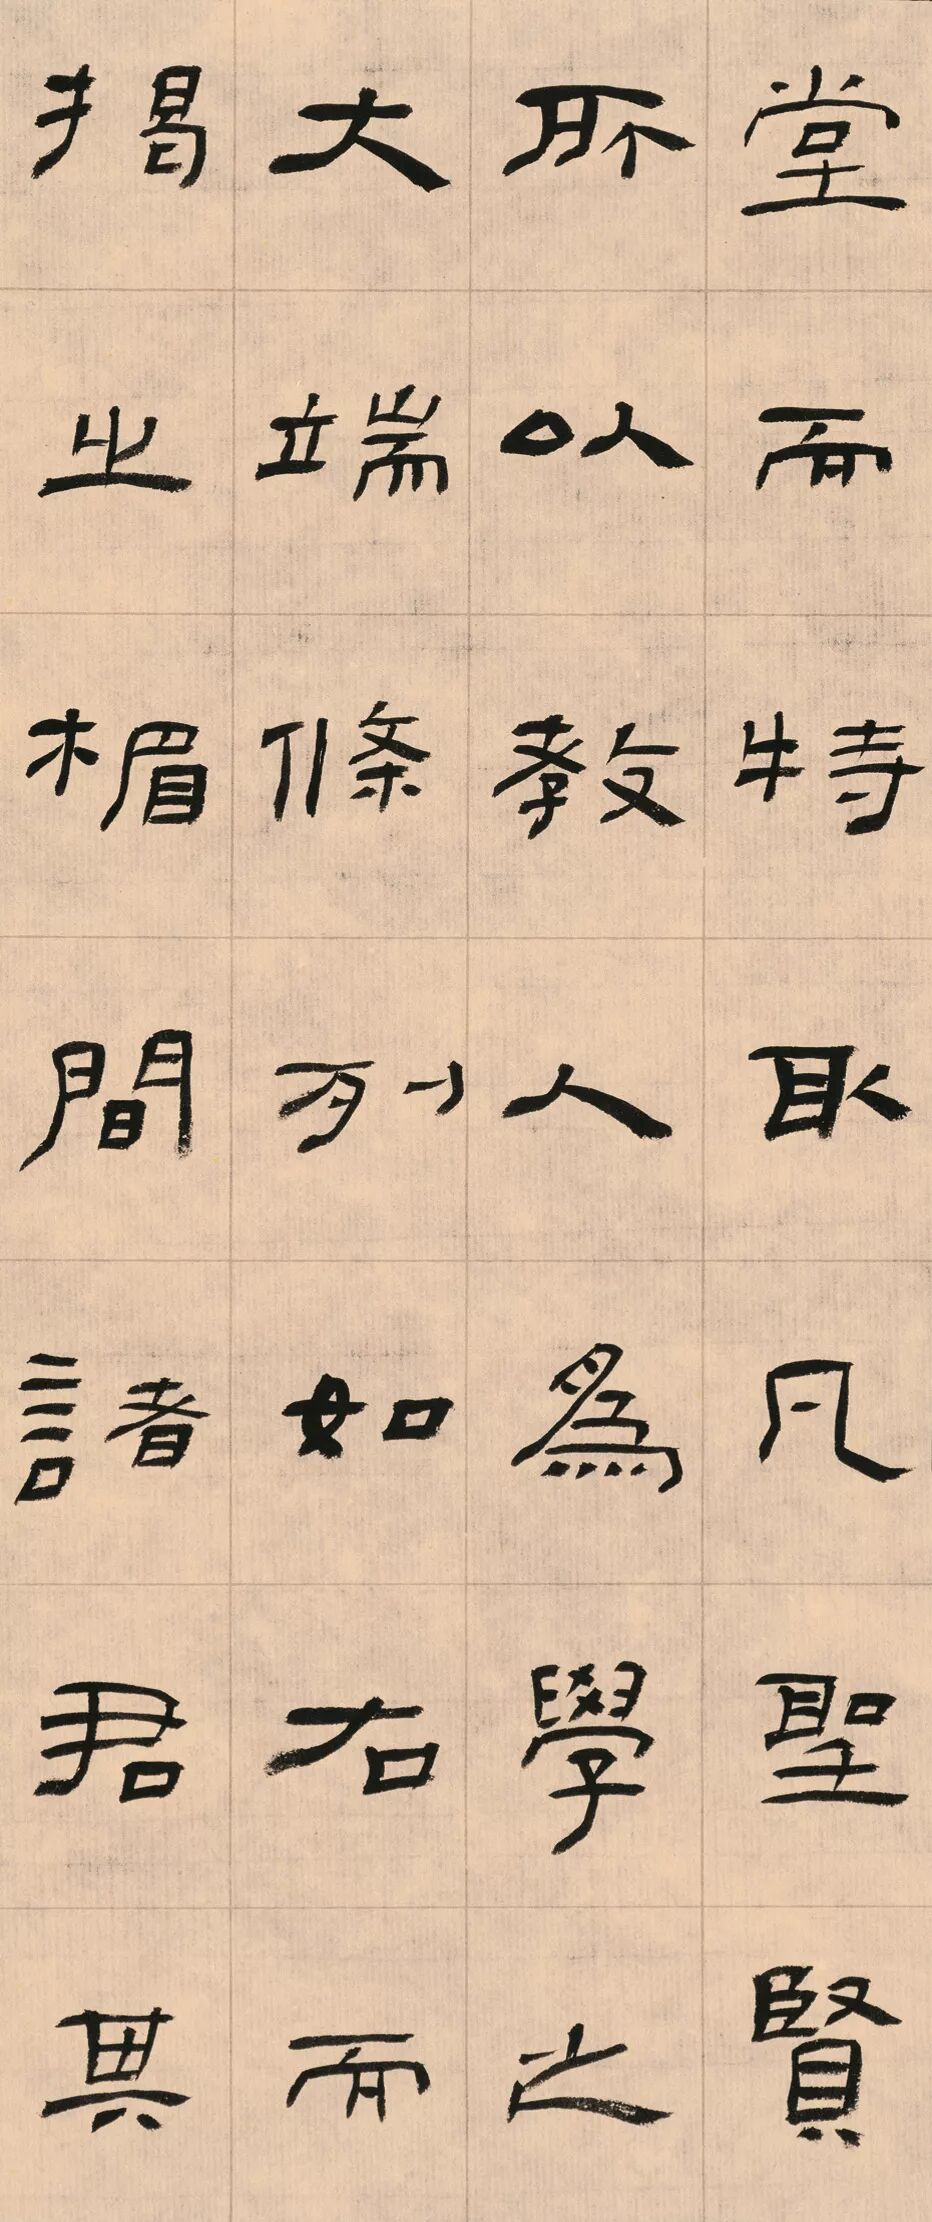 堂而特取凡聖賢
所以教人為學之
大端條列如右而
揭之楣間諸君其